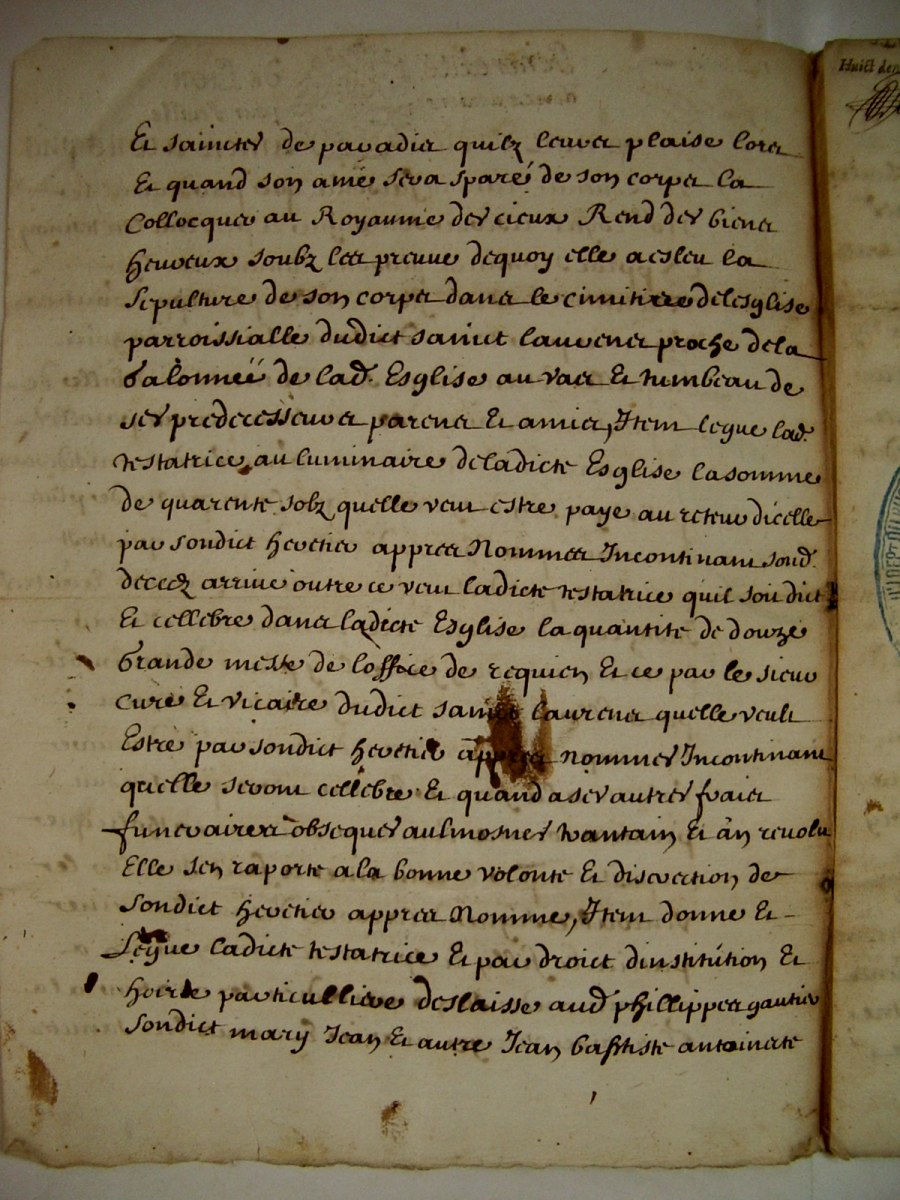 Et sainctes de paradis quilz leurs plaise lors
Et quand son ame sera sparé de son corps la
Collocquer au Royaume des cieux Rend des biens
heureux soubz les preuve dequoy elle a esleu la
Sepulture de son corps dans le cimitiere de lesglise
parroissialle dudict sainct laurens proche de la
de lad. Esglise au vas et tumbeau de
ses predecesseurs parens Et amis, Item legue lad.
testatrice au luminaire de ladicte Esglise la somme
de quarente solz quelle veut estre paye au reteur dicelle
par sondict heretier appres Nommes Incontinant sond.
decez arrive outre ce veut ladicte testatrice quil soit dict
Et cellebre dans ladicte Esglise la quantite de douze
Grande messe de loffice de requien Et ce par le sieur
curé Et vicaire dudict sainct laurens quelle veult
Estre par sondict heretier appres nommes Incontinant
quelle seront cellebre Et quand a ses autres frais
funeraires obseques aulmosnes Et an revolu
Elle sen raporte a la bonne volonte Et discretion de
sondict heretier appres Nomme, Item donne Et
Legue ladicte testatrice Et par droict dinstitution Et
particulliere deslaisse aud phillippes gautier
Sondict mary Jean Et autre Jean baptiste